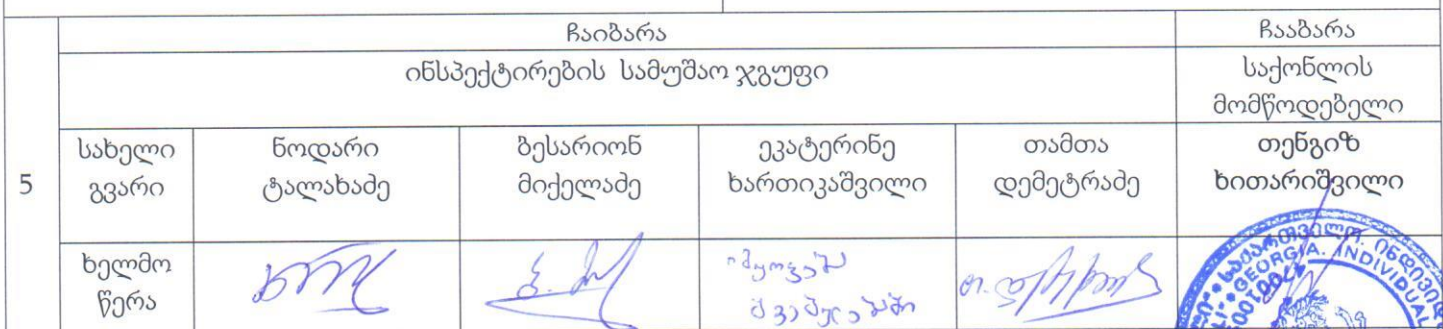 ჩაიბარა
ჩააბარა
ინსპექტირების სამუშაო ჯგუფი
საქონლის
მომწოდებელი
5
სახელი
გვარი
ნოდარი
ტალახაძე
ბესარიონ
მიქელაძე
ეკატერინე
ხართიკაშვილი
თამთა
დემეტრაძე
თენგიზ
ხითარიშვილი
ხელმო
წერა
იმყოფება
შვებულებაში
საქართველო. ინდივიდ
GEORGIA. INDIVIDUAL